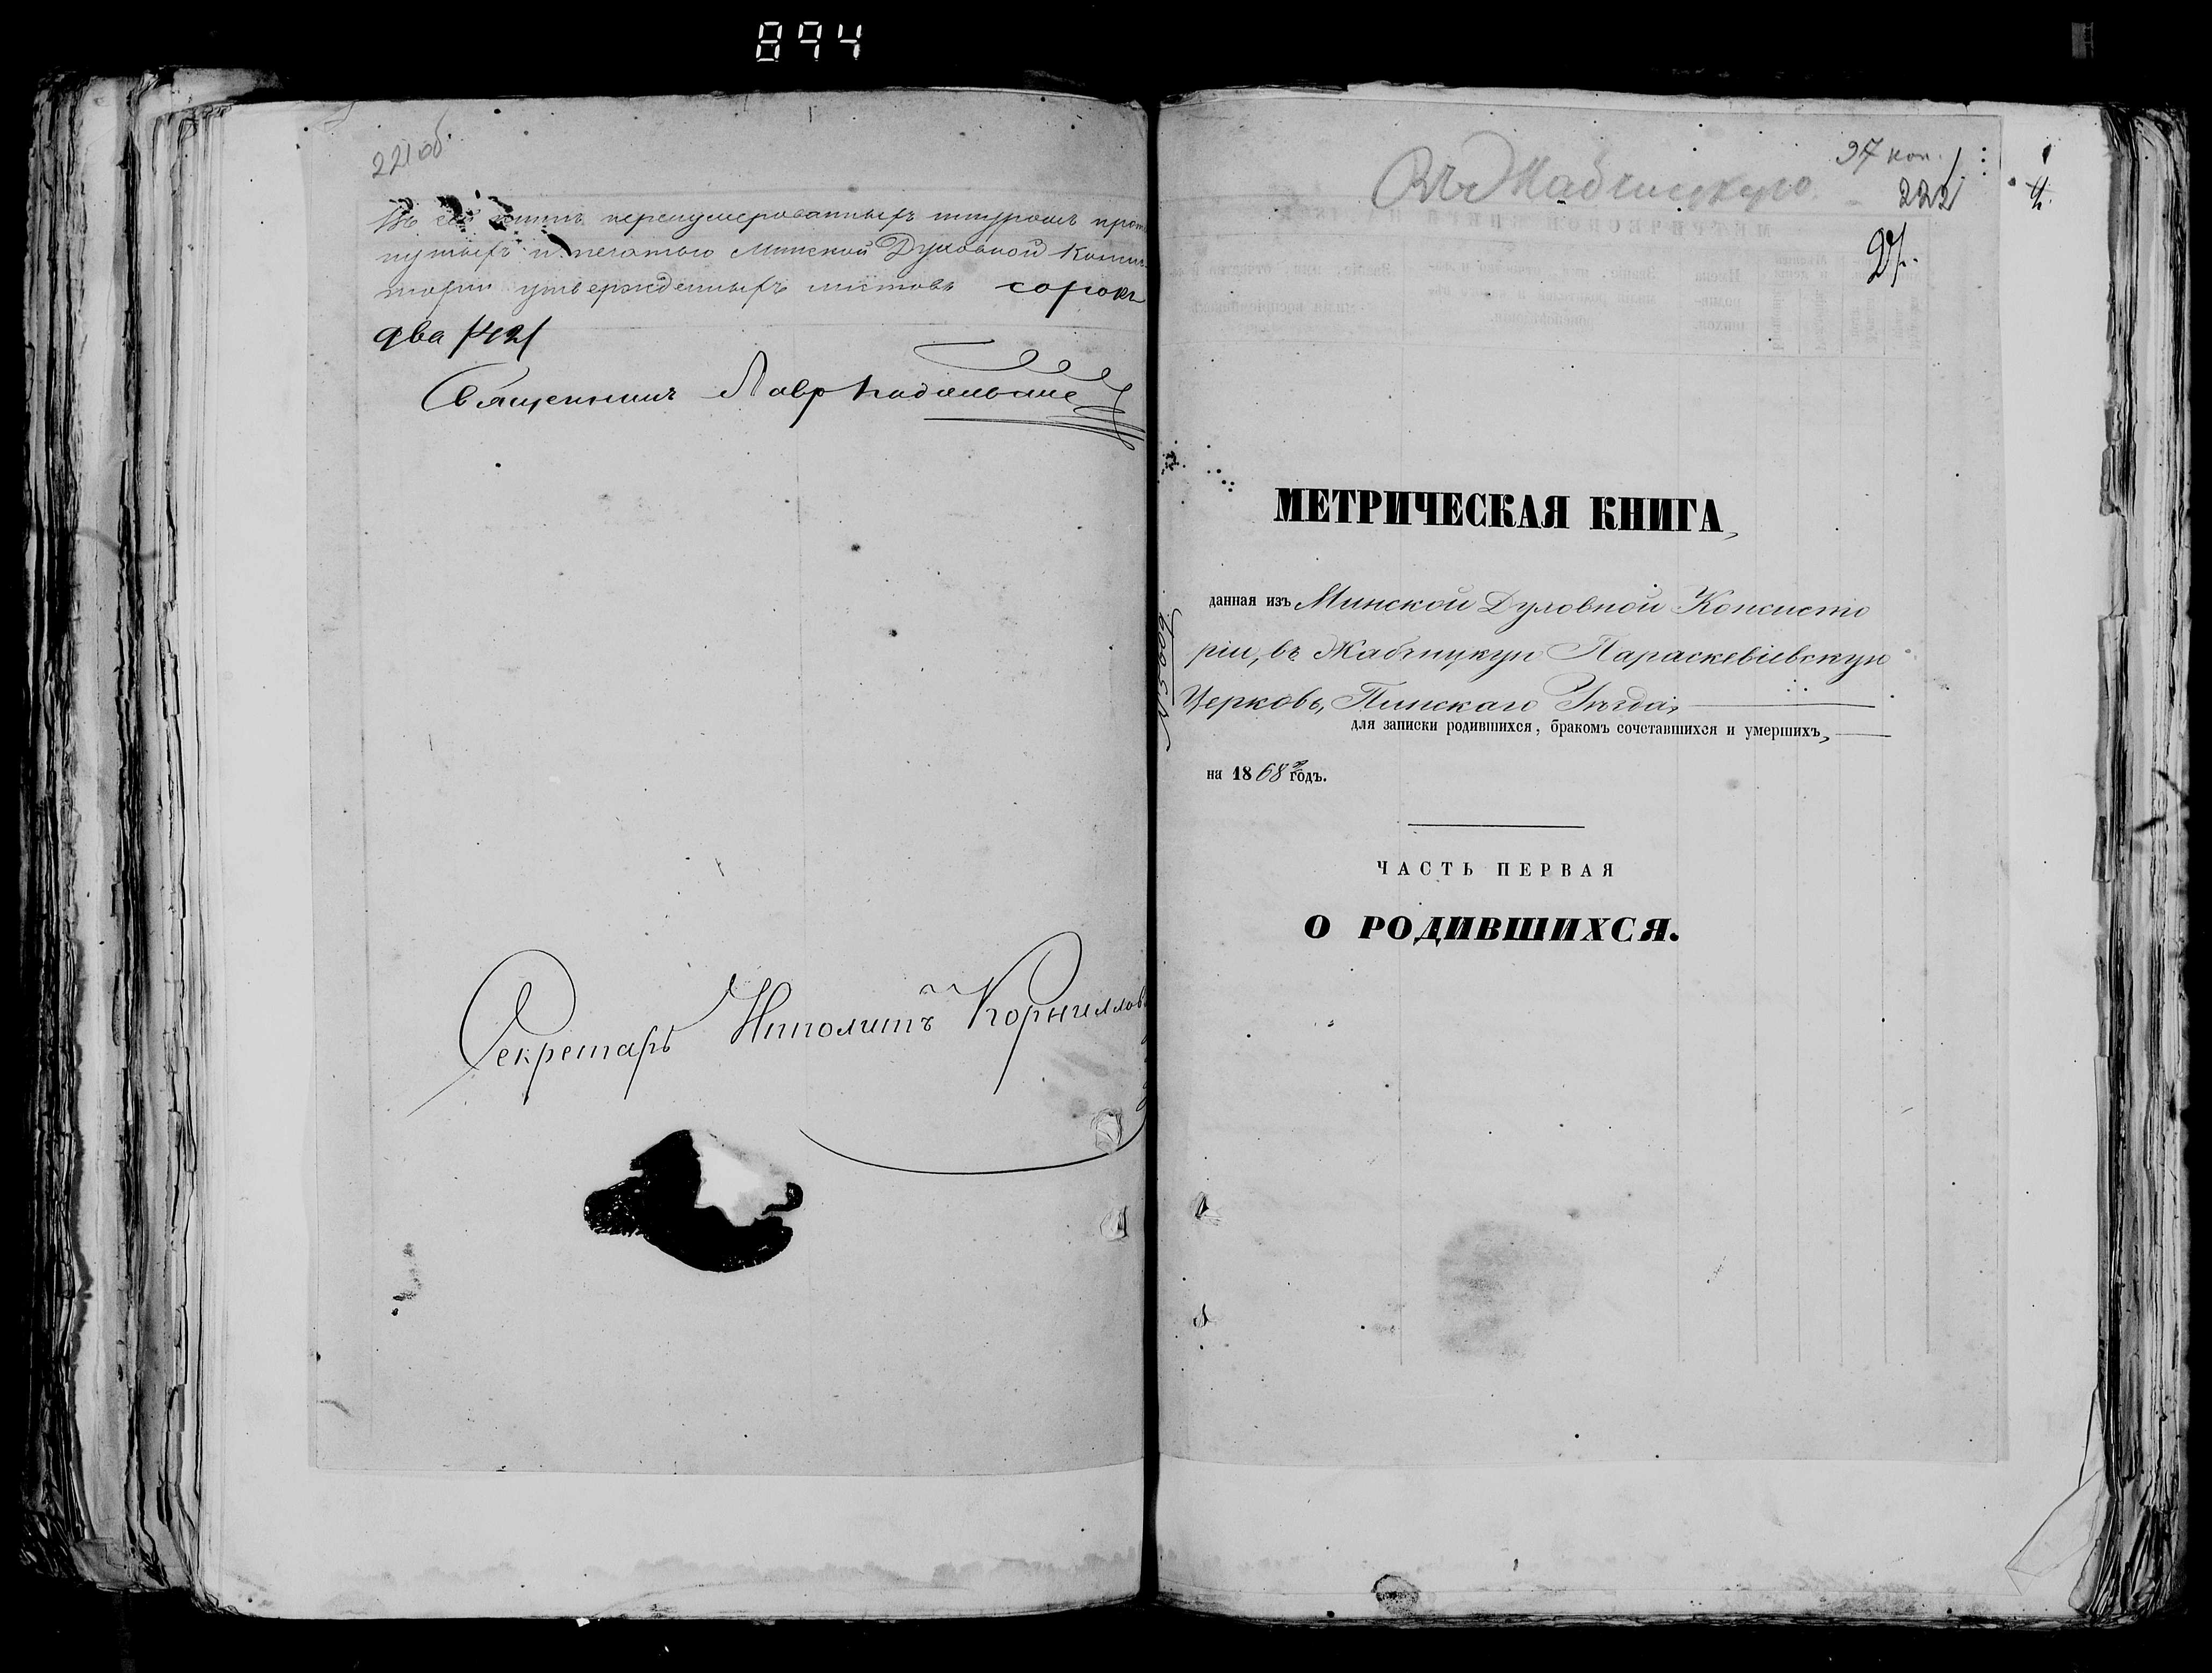 894
221 об
Въ сей книгѣ перенумерованныхъ шнуромъ прот
нутыхъ и печатью Минской Духовной Конси
сторіи утвержденныхъ листовъ сорокъ
два /42/
Священникъ Лавръ
Секретарь Иполитъ Корнилов
97 коп.
Въ Жабчицкую
222
МЕТРИЧЕСКАЯ КНИГА,
данная изъ Минской Духовной Консисто
ріи, въ Жабчицкую Параскевіевскую
Церковь, Пинскаго Уѣзда,
для записки родившихся, бракомъ сочетавшихся и умершихъ,
на 1868й годъ.
ЧАСТЬ ПЕРВАЯ
О РОДИВШИХСЯ.